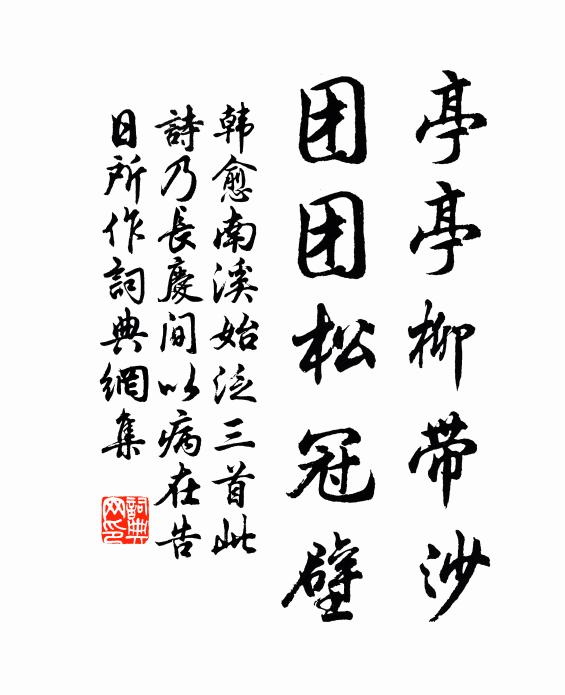 亭亭柳带沙
团团松冠壁
韩愈南溪始泛三首此
詩乃長慶间以病在告
日所作詞典網集
詞典网印